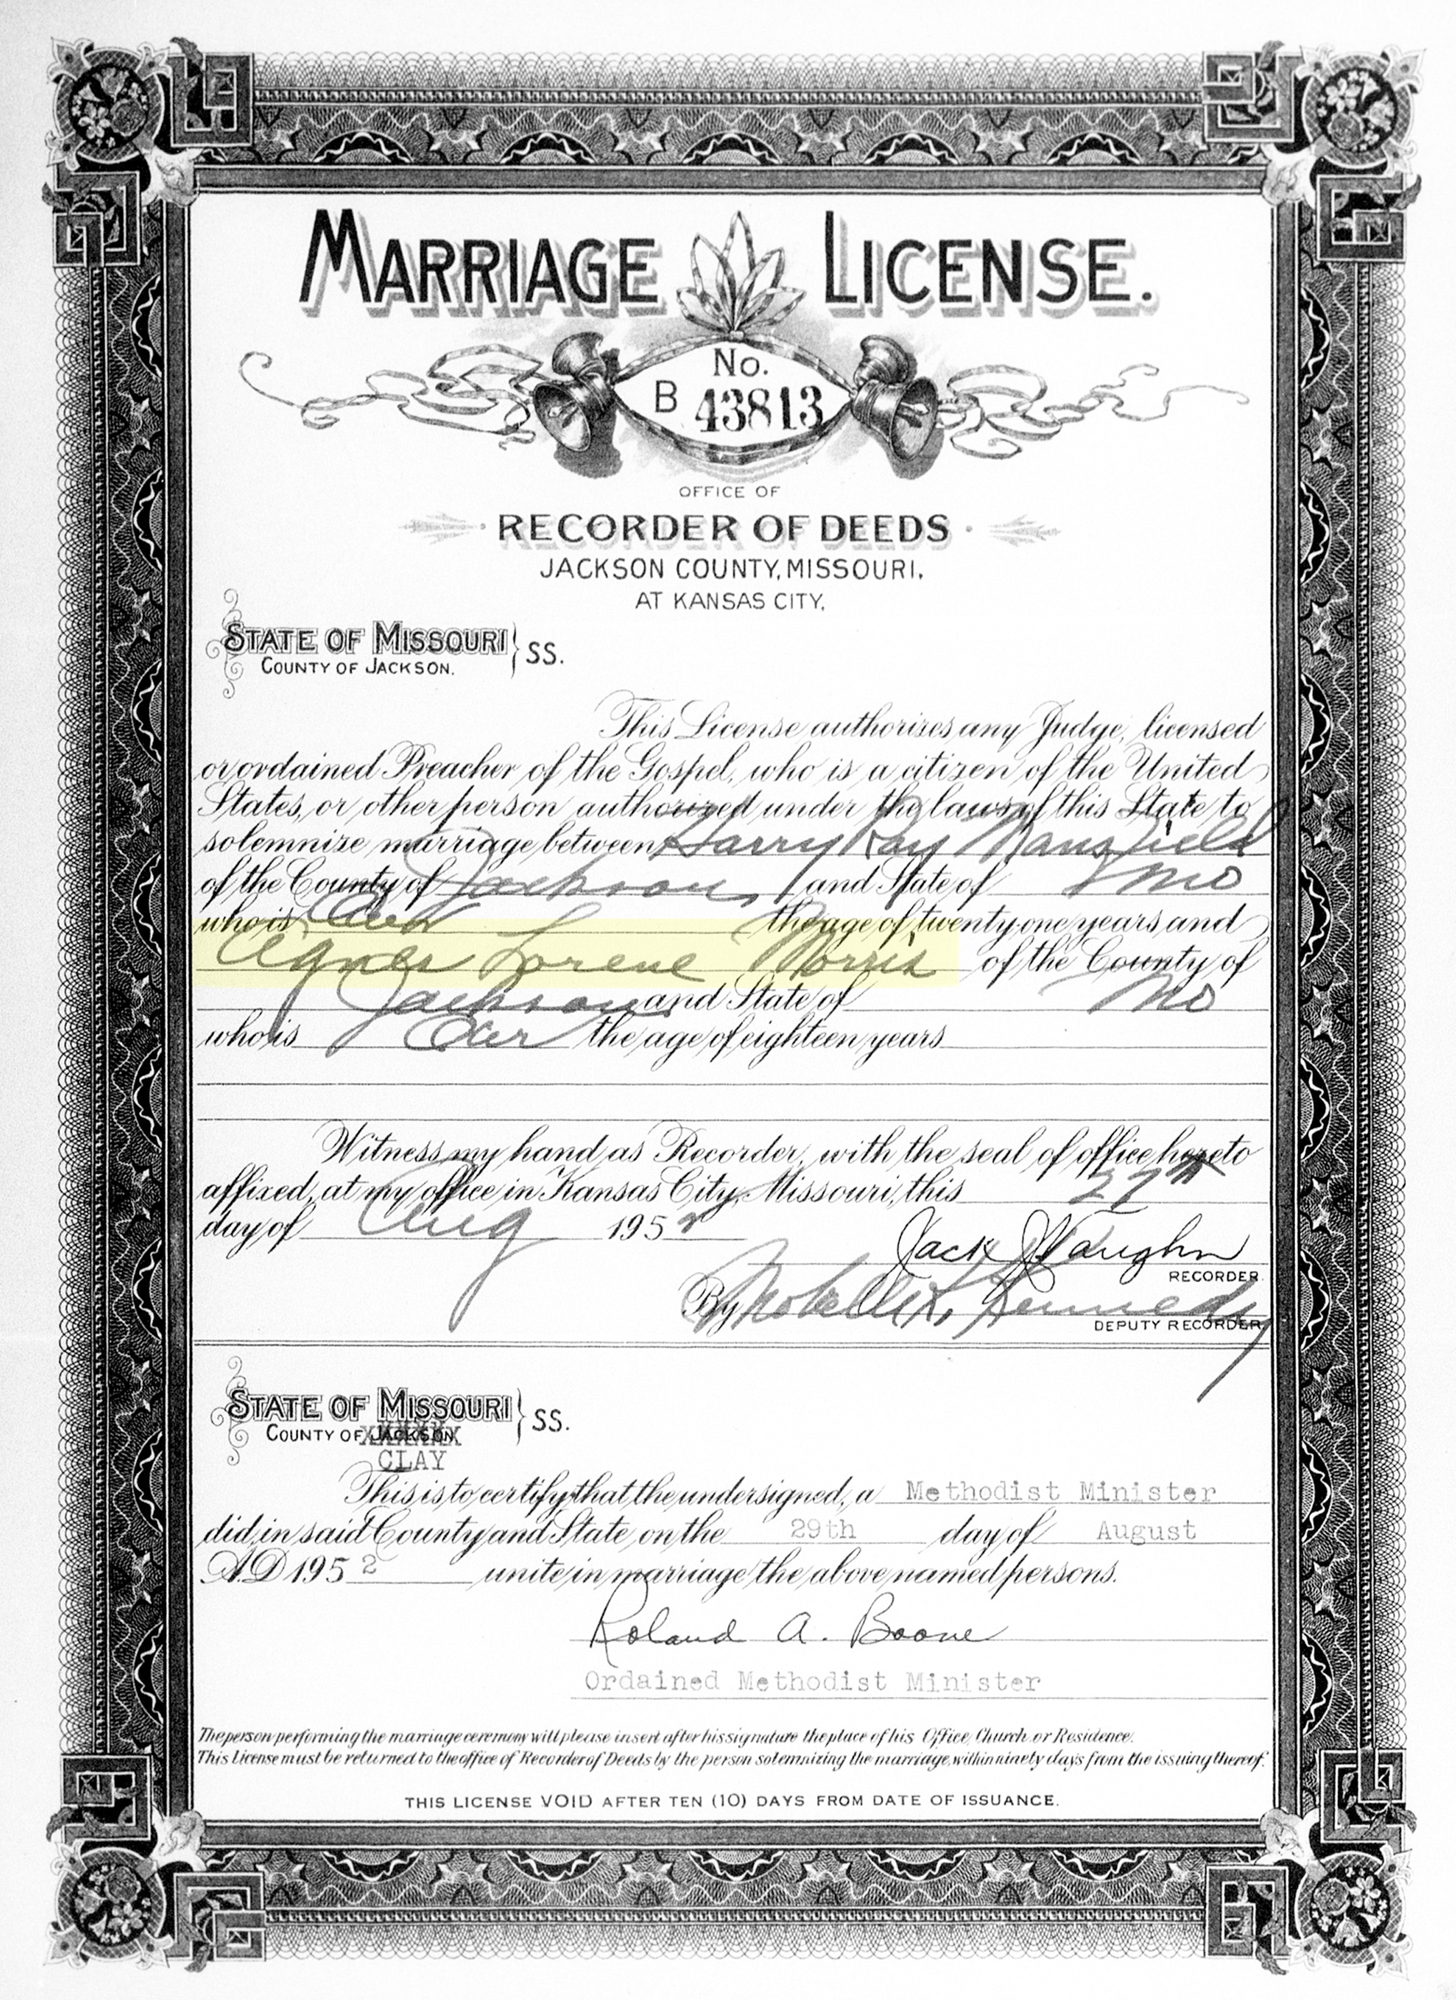 MARRIAGE LICENSE.
No.
B 43813
OFFICE OF
RECORDER OF DEEDS
JACKSON COUNTY, MISSOURI.
AT KANSAS CITY.
STATE OF MISSOURI } SS.
COUNTY OF JACKSON.
This License authorizes any Judge, licensed
or ordained Preacher of the Gospel, who is a citizen of the United
States, or other person authorized under the laws of this State to
solemnize marriage between Harry Ray Mansfield
of the County of Jackson, and State of Mo
who is Over the age of twenty-one years and
Agnes Lorene Morris of the County of
Jackson and State of Mo
who is Over the age of eighteen years
Witness my hand as Recorder, with the seal of office hereto
affixed, at my office in Kansas City, Missouri, this 27th
day of Aug 1952
Jack J. Vaughn
RECORDER.
By K. Kennedy
DEPUTY RECORDER
STATE OF MISSOURI } SS.
COUNTY OF JACKSON
CLAY
This is to certify that the undersigned, a Methodist Minister
did, in said County and State, on the 29th day of August
A.D 1952 unite in marriage the above named persons.
Roland A. Boone
Ordained Methodist Minister
The person performing the marriage ceremony will please insert after his signature the place of his Office, Church or Residence.
This License must be returned to the office of Recorder of Deeds by the person solemnizing the marriage, within ninety days from the issuing thereof.
THIS LICENSE VOID AFTER TEN (10) DAYS FROM DATE OF ISSUANCE.